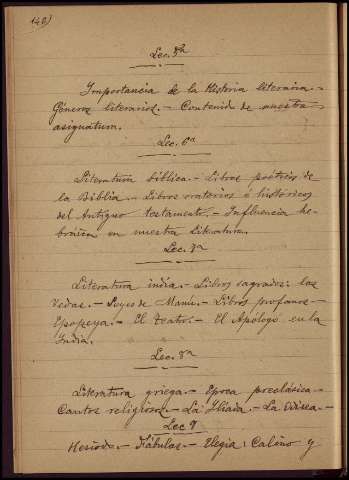 140)
Lec. 5ª
Importancia de la Historia literaria.-
Géneros literarios.- Contenido de nuestra
asignatura.
Lec. 6ª
Literatura bíblica.- Libros poéticos de
la Biblia.- Libros oratorios é históricos
del Antiguo testamento.- Influencia he-
bráica en nuestra Literatura.
Lec. 7ª
Literatura india.- Libros sagrados: los
Vedas.- Leyes de Manú.- Libros profanos.-
Epopeya.- El Teatro.- El Apólogo en la
India.
Lec. 8ª
Literatura griega.- Epoca preclásica.-
Cantos religiosos.- La Iliada.- La Odisea.-
Lec 9
Hesiodo.- Fábulas.- Elegia: Calino y